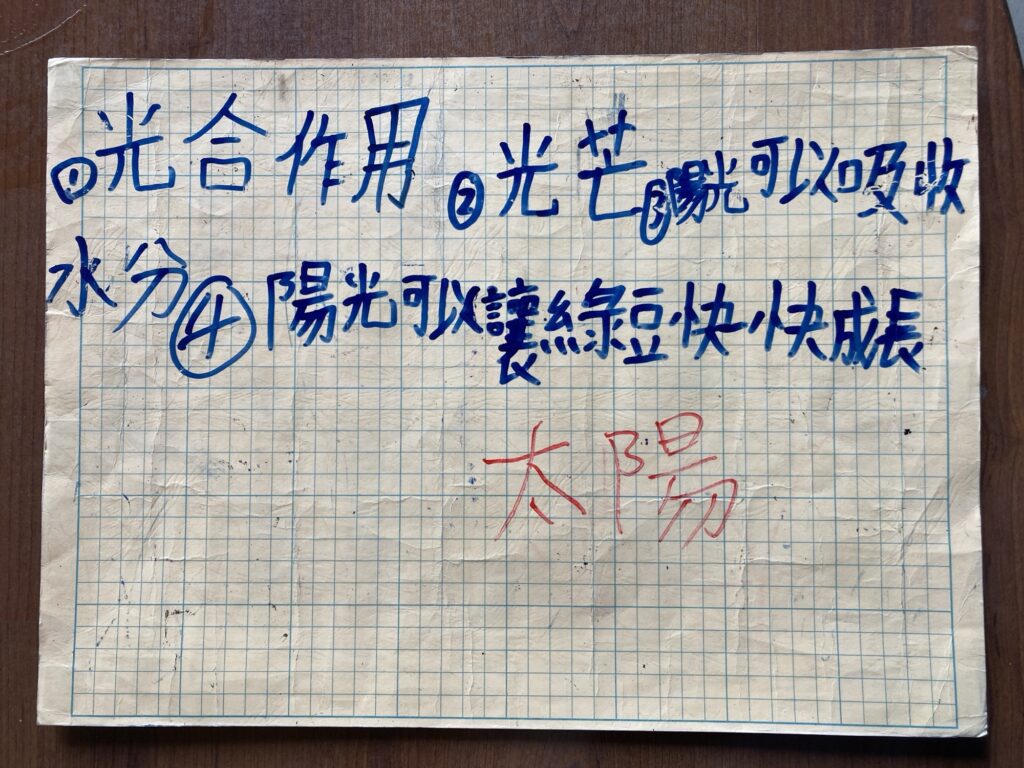 ①光合作用 ②光芒 ③陽光可以吸收
水分 ④陽光可以讓綠豆快快成長
太陽